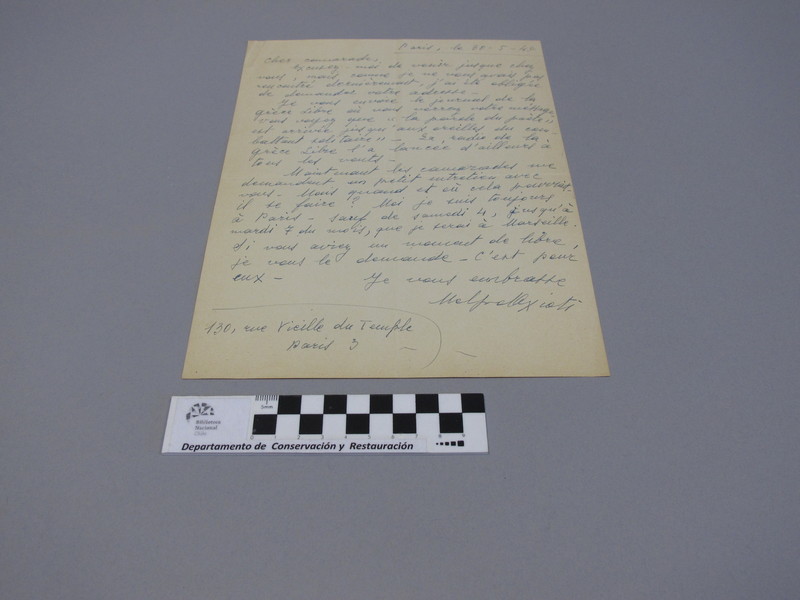 Paris, le
Cher camarade,
Excusez-moi de venir jusque chez
vous, mais comme je ne vous avais pas
rencontré dernièrement, j'ai été obligée
de demander votre adresse.
Je vous envoie le journal de la
Grèce libre où vous verrez votre message
Vous voyez que "la parole du poète"
est arrivée jusqu'aux oreilles du com-
battant solitaire" - La radio de la
Grèce Libre l'a lancée d'ailleurs à
tous les vents -
Maintenant les camarades me
demandent un petit entretien avec
vous - Mais quand et où cela pourrais
il se faire? Moi je suis toujours
à Paris - sauf de samedi 4, jusqu'à
mardi 7 du mois, que je serai à Marseille.
Si vous aviez un moment de libre,
je vous le demande - C'est pour
eux -
Je vous embrasse
130, rue Vieille du Temple
Paris 3
Biblioteca
Nacional
Chile
5mm
0 1 2 3 4 5 6 7 8 9
Departamento de Conservación y Restauración